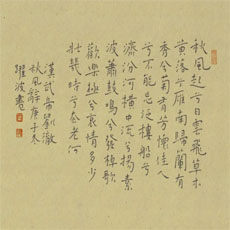 秋風起兮白雲飛草木
黃落兮雁南歸蘭有
秀兮菊有芳懷佳人
兮不能忘泛樓船兮
濟汾河橫中流兮揚素
波簫鼓鳴兮發棹歌
歡樂極兮哀情多少
壯幾時兮奈老何
漢武帝劉徹
秋風辭庚子冬
躍波書